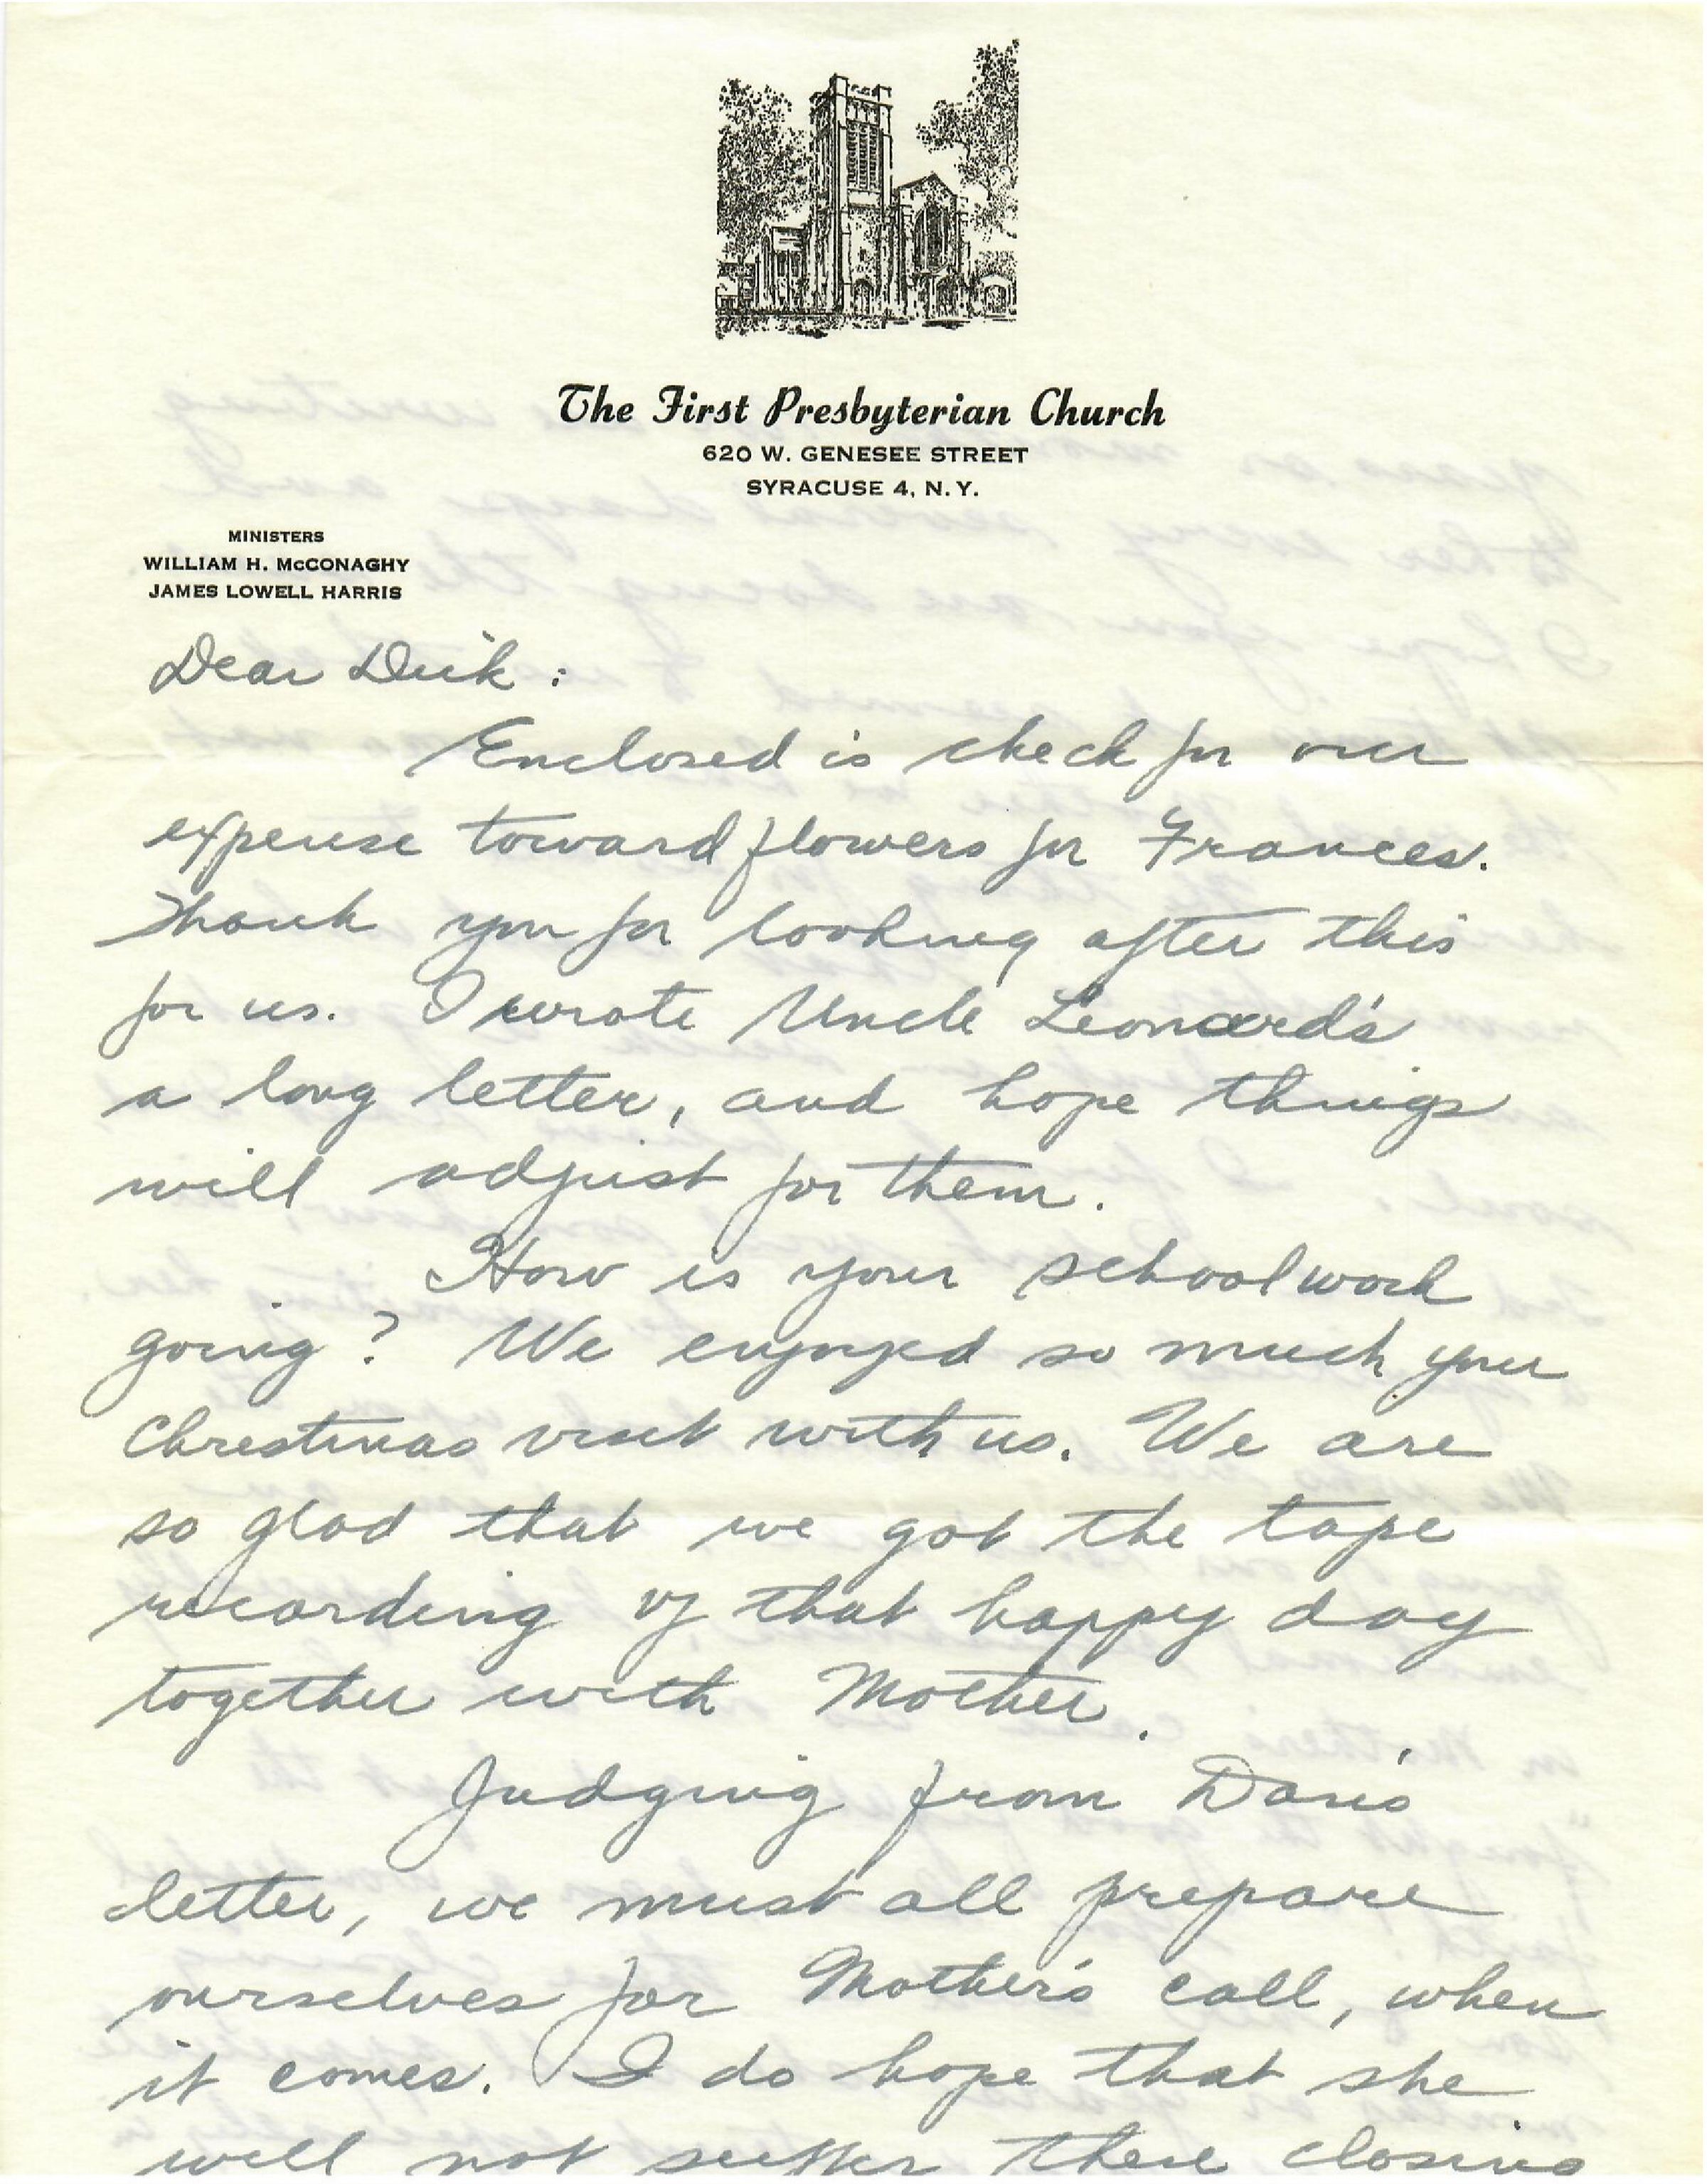 The First Presbyterian Church
620 W. GENESEE STREET
SYRACUSE 4, N. Y.
MINISTERS
WILLIAM H. McCONAGHY
JAMES LOWELL HARRIS
Dear Dick :
Enclosed is check for our
expense toward flowers for Frances.
Thank you for looking after this
for us. I wrote Uncle Leonard's
a long letter, and hope things
will adjust for them.
How is your school work
going? We enjoyed so much your
Christmas visit with us. We are
so glad that we got the tape
recording of that happy day
together with Mother.
Judging from Davis
letter, we must all prepare
ourselves for Mother's call, when
it comes. I do hope that she
will not suffer these closing